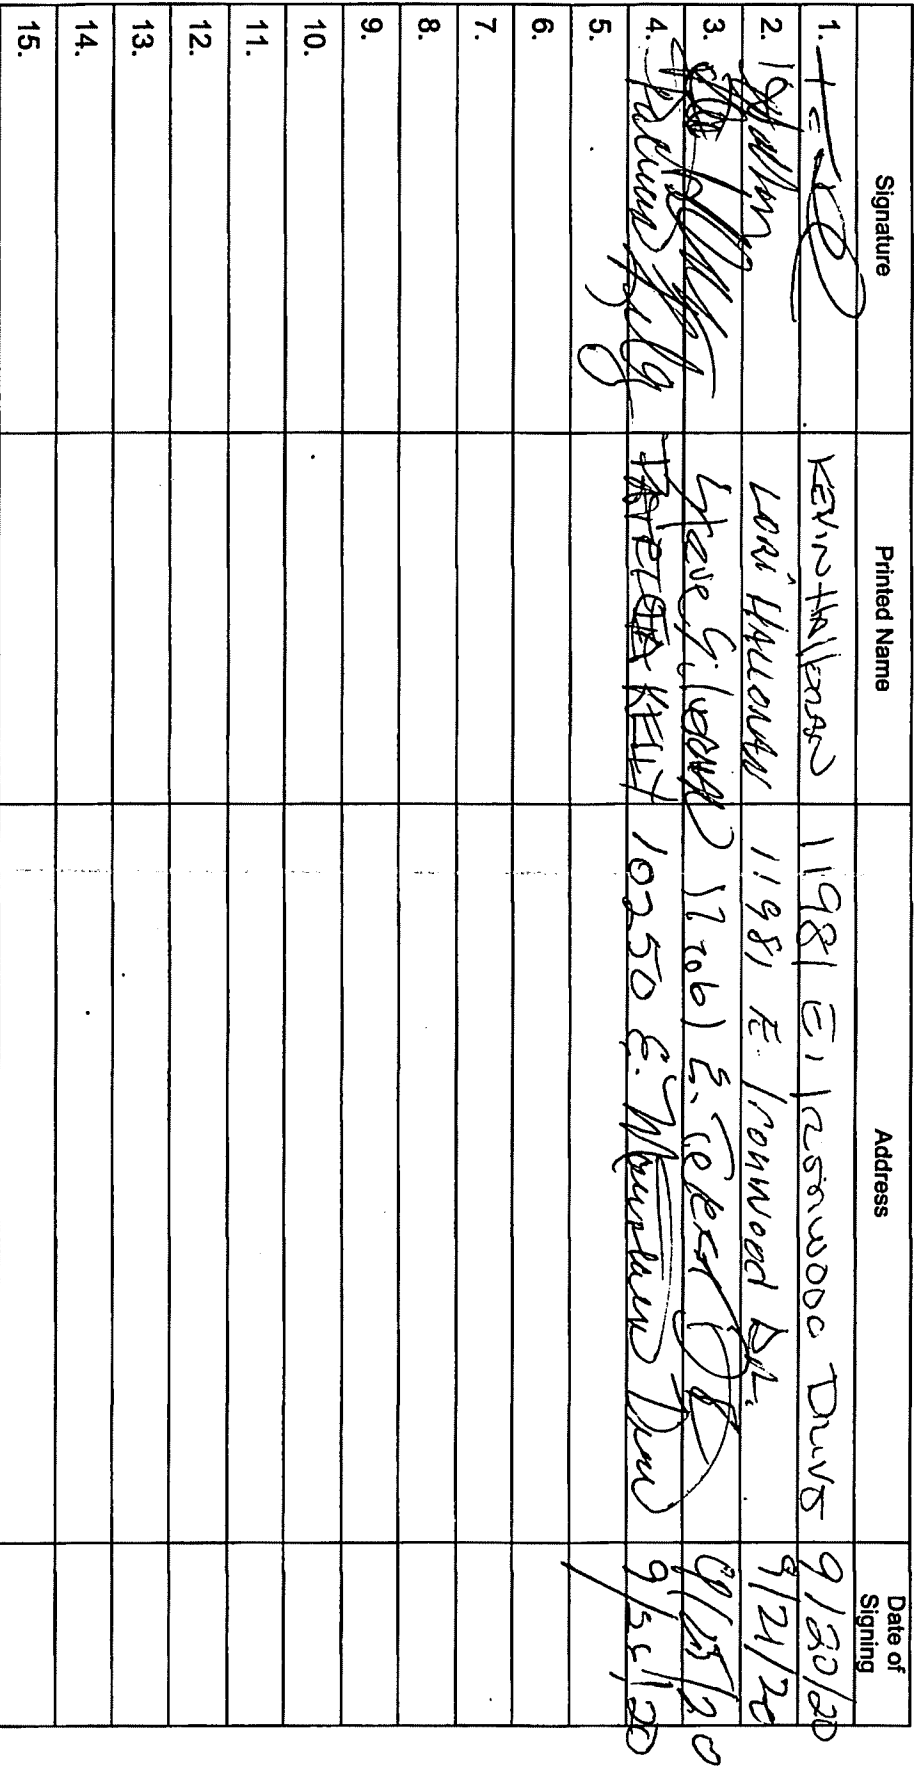 Signature Printed Name Address Date of Signing
1. KEVIN HALLORAN 11981 E. IRONWOOD DRIVE 9/20/20
2. LORI HALLORAN 11981 E. Ironwood Dr. 9/21/20
3. Steve E. 9/23/20
4. Patricia Kelly PATRICIA KELLY 10250 E. Mountain 9/20
5.
6.
7.
8.
9.
10.
11.
12.
13.
14.
15.